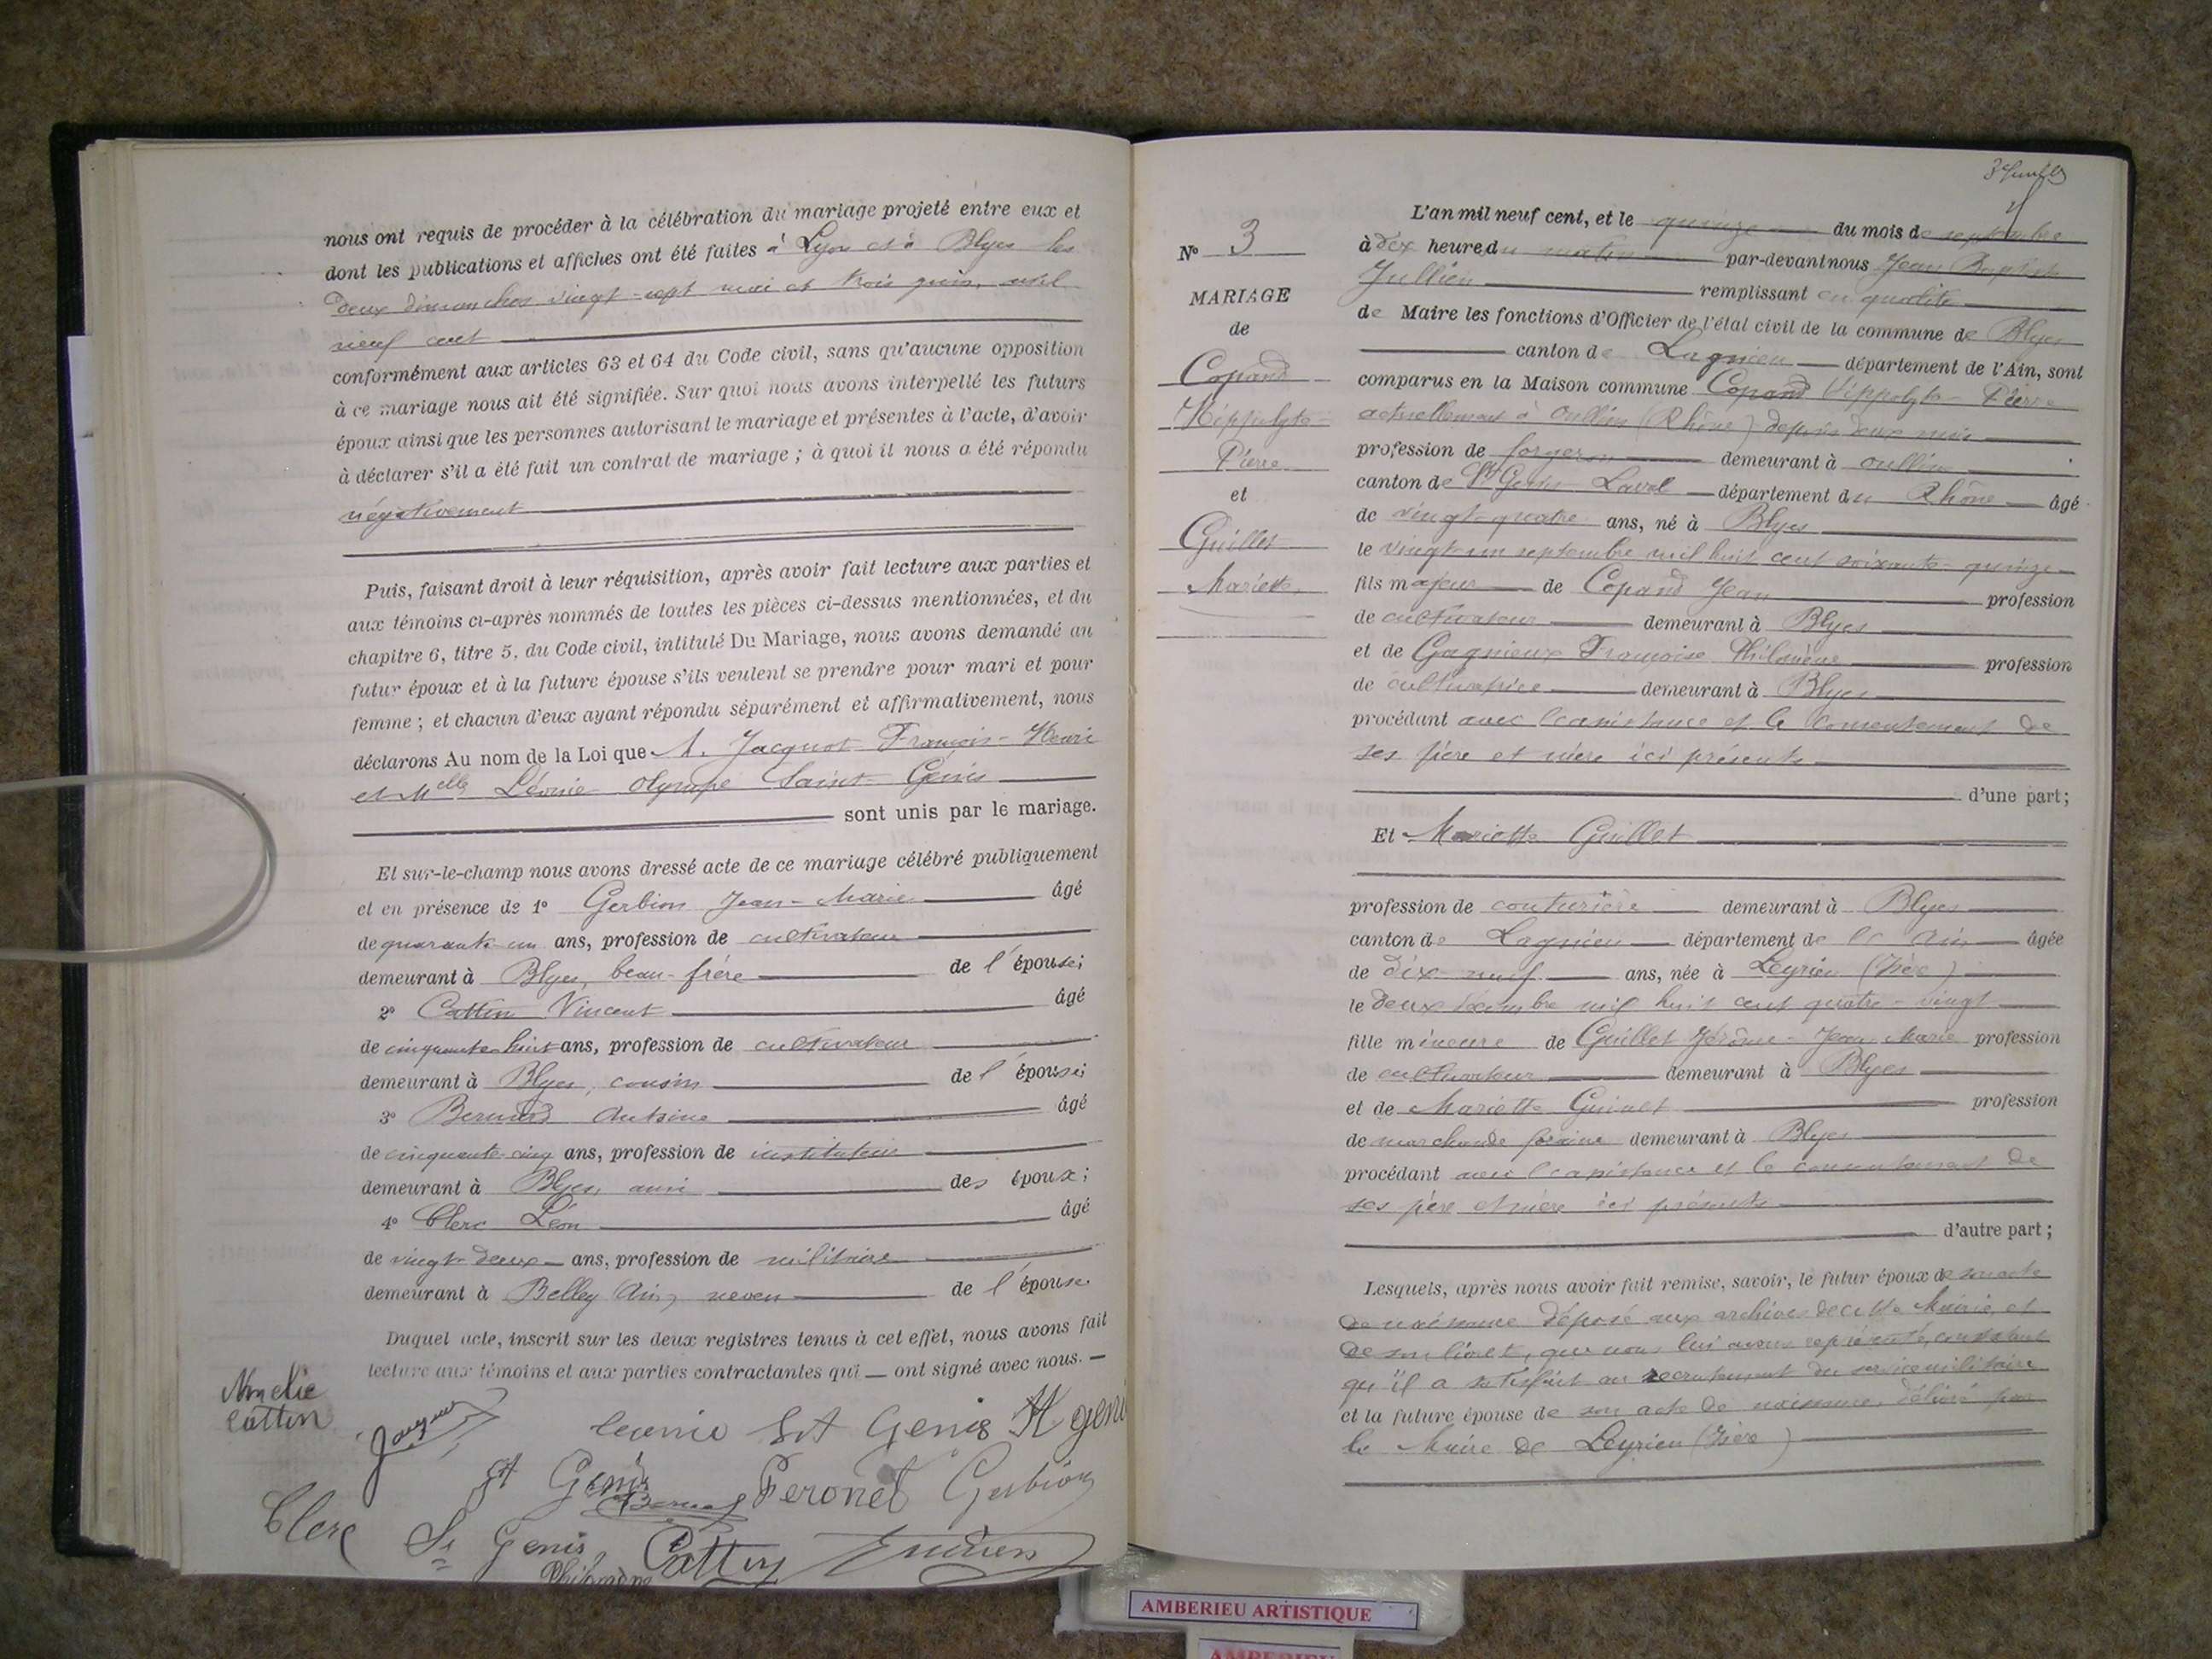 nous ont requis de procéder à la célébration du mariage projeté entre eux et
dont les publications et affiches ont été faites à Lyon et à Blyes les
deux dimanches vingt-sept mai et trois juin, mil
neuf cent
conformément aux articles 63 et 64 du Code civil, sans qu'aucune opposition
à ce mariage nous ait été signifiée. Sur quoi nous avons interpellé les futurs
époux ainsi que les personnes autorisant le mariage et présentes à l'acte, d'avoir
à déclarer s'il a été fait un contrat de mariage ; à quoi il nous a été répondu
négativement
Puis, faisant droit à leur réquisition, après avoir fait lecture aux parties et
aux témoins ci-après nommés de toutes les pièces ci-dessus mentionnées, et du
chapitre 6, titre 5, du Code civil, intitulé Du Mariage, nous avons demandé au
futur époux et à la future épouse s'ils veulent se prendre pour mari et pour
femme ; et chacun d'eux ayant répondu séparément et affirmativement, nous
déclarons Au nom de la Loi que Jacquot François-Henri
et Melle Léonie Olympe Saint-Genis
sont unis par le mariage.
Et sur-le-champ nous avons dressé acte de ce mariage célébré publiquement
et en présence de 1° Gerbion Jean-Marie âgé
de quarante-un ans, profession de cultivateur
demeurant à Blyes, beau-frère de l'épouse;
2° Cattin Vincent âgé
de cinquante-huit ans, profession de cultivateur
demeurant à Blyes, cousin de l'épouse;
3° Bernard Antoine âgé
de cinquante-cinq ans, profession de instituteur
demeurant à Blyes, ami des époux;
4° Clerc Léon âgé
de vingt-deux ans, profession de militaire
demeurant à Belley (Ain) neveu de l'épouse
Duquel acte, inscrit sur les deux registres tenus à cet effet, nous avons fait
lecture aux témoins et aux parties contractantes qui — ont signé avec nous. —
Amelie
Cattin
Jacquot Leonie St Genis
St Genis Bernard Peronet Gerbion
Clerc St Genis Cattin
Philomène
N° 3
MARIAGE
de
Copand
Hippolyte
Pierre
et
Guillet
Mariette
L'an mil neuf cent, et le quinze du mois de septembre
à dix heures du matin par-devant nous Jean Baptiste
Jullien remplissant en qualité
de Maire les fonctions d'Officier de l'état civil de la commune de Blyes
canton de Lagnieu département de l'Ain, sont
comparus en la Maison commune Copand Hippolyte-Pierre
actuellement à Oullins (Rhône) depuis deux mois
profession de forgeron demeurant à Oullins
canton de St Genis Laval département du Rhône âgé
de vingt-quatre ans, né à Blyes
le vingt-un septembre mil huit cent soixante-quinze
fils majeur de Copand Jean profession
de cultivateur demeurant à Blyes
et de Gagnieux Françoise Philomène profession
de cultivatrice demeurant à Blyes
procédant avec l'assistance et le consentement de
ses père et mère ici présents
d'une part;
Et Mariette Guillet
profession de couturière demeurant à Blyes
canton de Lagnieu département de l'Ain âgée
de dix-neuf ans, née à Leyrieu (Isère)
le deux décembre mil huit cent quatre-vingt
fille mineure de Guillet Jérôme-Jean Marie profession
de cultivateur demeurant à Blyes
et de Mariette Guinet profession
de marchande foraine demeurant à Blyes
procédant avec l'assistance et le consentement de
ses père et mère ici présents
d'autre part ;
Lesquels, après nous avoir fait remise, savoir, le futur époux de son acte
de naissance déposé aux archives de cette Mairie et
de son livret, que nous lui avons représenté, constatant
qu'il a satisfait au recrutement du service militaire
et la future épouse de son acte de naissance, délivré par
le Maire de Leyrieu (Isère)
AMBERIEU ARTISTIQUE
AMBERIEU